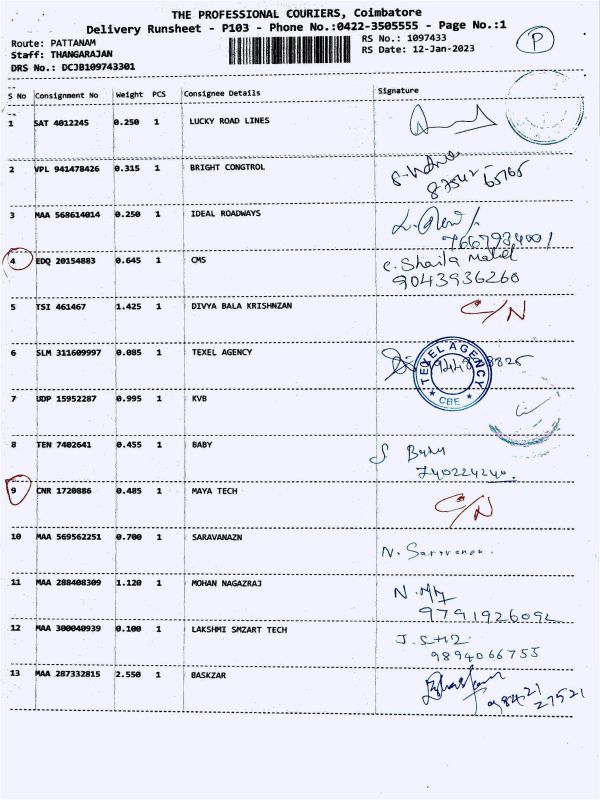 THE PROFESSIONAL COURIERS, Coimbatore
Delivery Runsheet - P103 - Phone No.:0422-3505555 - Page No.:1
Route: PATTANAM
RS No.: 1097433
P
Staff: THANGARAJAN
RS Date: 12-Jan-2023
DRS No.: DCJB109743301
S No Consignment No Weight PCS Consignee Details Signature
1 SAT 4012245 0.250 1 LUCKY ROAD LINES
2 VPL 941478426 0.315 1 BRIGHT CONGTROL
87542 65765
3 MAA 568614014 0.250 1 IDEAL ROADWAYS
7667934001
4 EDQ 20154883 0.645 1 CMS C. Shaila
9043936260
5 TSI 461467 1.425 1 DIVYA BALA KRISHNZAN C/N
6 SLM 311609997 0.085 1 TEXEL AGENCY
TEXEL AGENCY
CBE
7 UDP 15952287 0.995 1 KVB
8 TEN 7402641 0.455 1 BABY S Baby
740224240
9 CNR 1720886 0.485 1 MAYA TECH C/N
10 MAA 569562251 0.700 1 SARAVANAZN N. Saravanan
11 MAA 288408309 1.120 1 MOHAN NAGAZRAJ
9791926092
12 MAA 300040939 0.100 1 LAKSHMI SMZART TECH
9894066755
13 MAA 287332815 2.550 1 BASKZAR
98421
27521